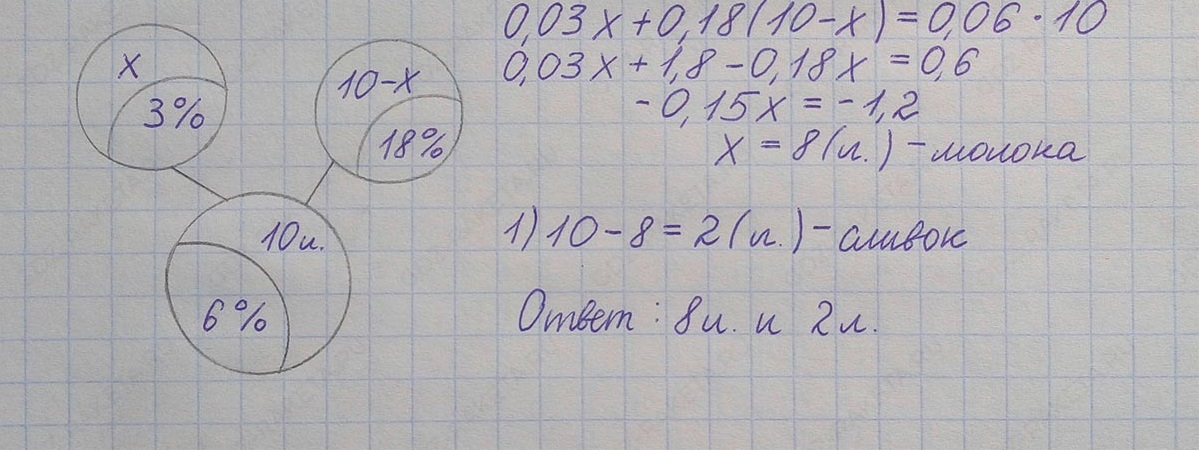 x
3%
10-x
18%
10л.
6%
0,03x+0,18(10-x)=0,06·10
0,03x+1,8-0,18x=0,6
-0,15x=-1,2
x=8(л.)-молока
1)10-8=2(л.)-сливок
Ответ: 8л. и 2л.